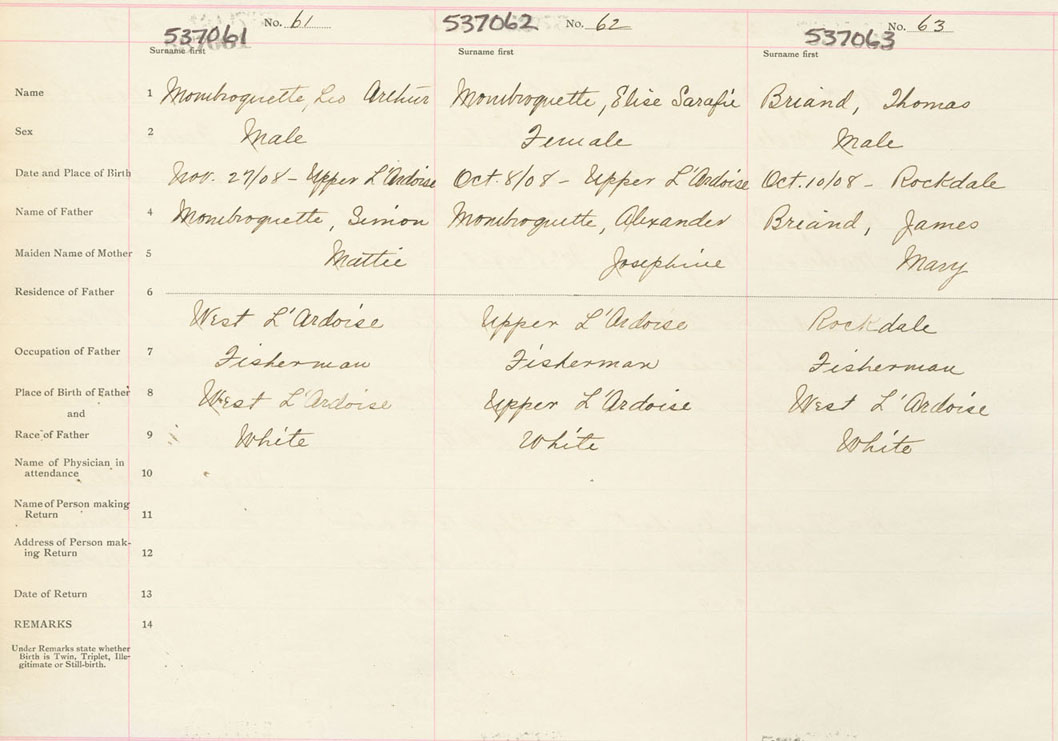 No. 61 537062 No. 62 No. 63
537061 537063
Surname first Surname first Surname first
Name 1 Mombroquette, Leo Arthur Mombroquette, Elise Sarafie Briand, Thomas
Sex 2 Male Female Male
Date and Place of Birth Nov. 27/08 - Upper L'Ardoise Oct. 8/08 - Upper L'Ardoise Oct. 10/08 - Rockdale
Name of Father 4 Mombroquette, Simon Mombroquette, Alexander Briand, James
Maiden Name of Mother 5 Mattie Josephine Mary
Residence of Father 6
West L'Ardoise Upper L'Ardoise Rockdale
Occupation of Father 7 Fisherman Fisherman Fisherman
Place of Birth of Father 8 West L'Ardoise Upper L'Ardoise West L'Ardoise
and
Race of Father 9 White White White
Name of Physician in
attendance 10
Name of Person making
Return 11
Address of Person mak-
ing Return 12
Date of Return 13
REMARKS 14
Under Remarks state whether
Birth is Twin, Triplet, Ille-
gitimate or Still-birth.